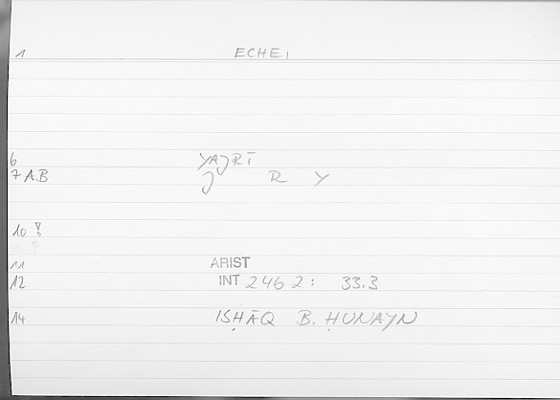 1 ECHEI
6 YAJRĪ
7 AB J R Y
10 8
11 ARIST
12 INT 246 2: 33.3
14 ISḤĀQ B. ḤUNAYN